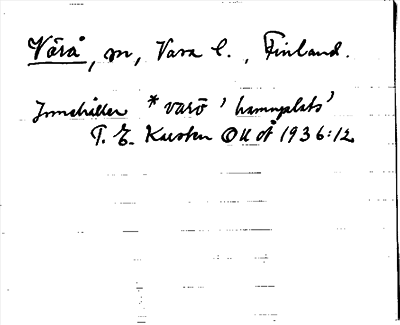 Vörå, m, Vasa l., Finland.
Innehåller *varō 'hamnplats'
T. E. Karsten OUÅ 1936:12